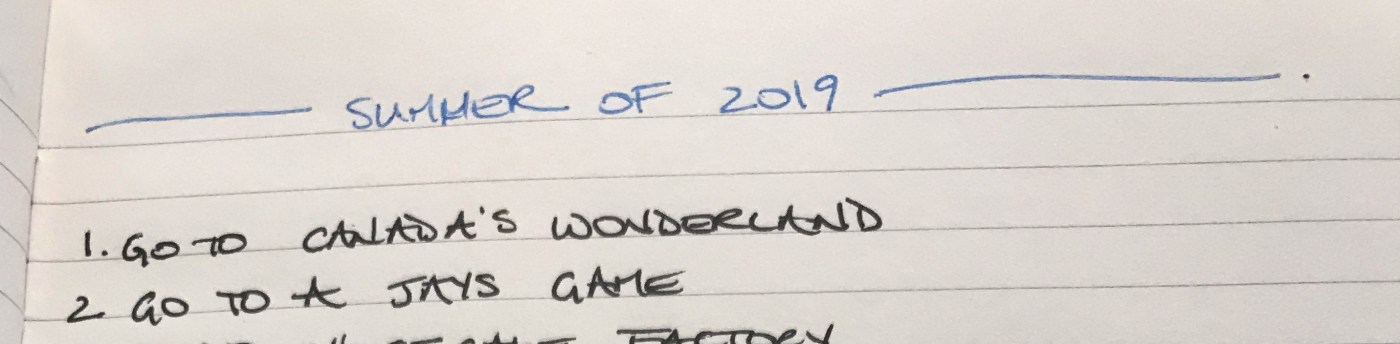 SUMMER OF 2019
1. GO TO CANADA'S WONDERLAND
2 GO TO A JAYS GAME
FACTORY